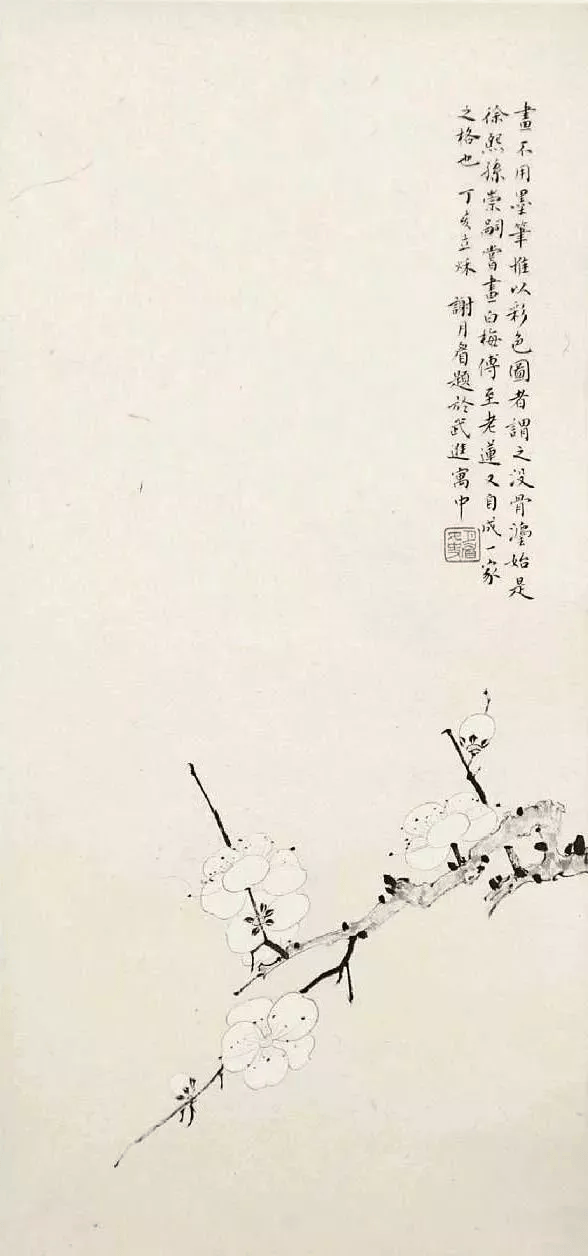 畫不用墨筆惟以彩色圖者謂之没骨瀍始是
徐熙孫崇嗣嘗畫白梅傳至老蓮又自成一家
之格也 丁亥立秌 謝月眉題於武進寓中